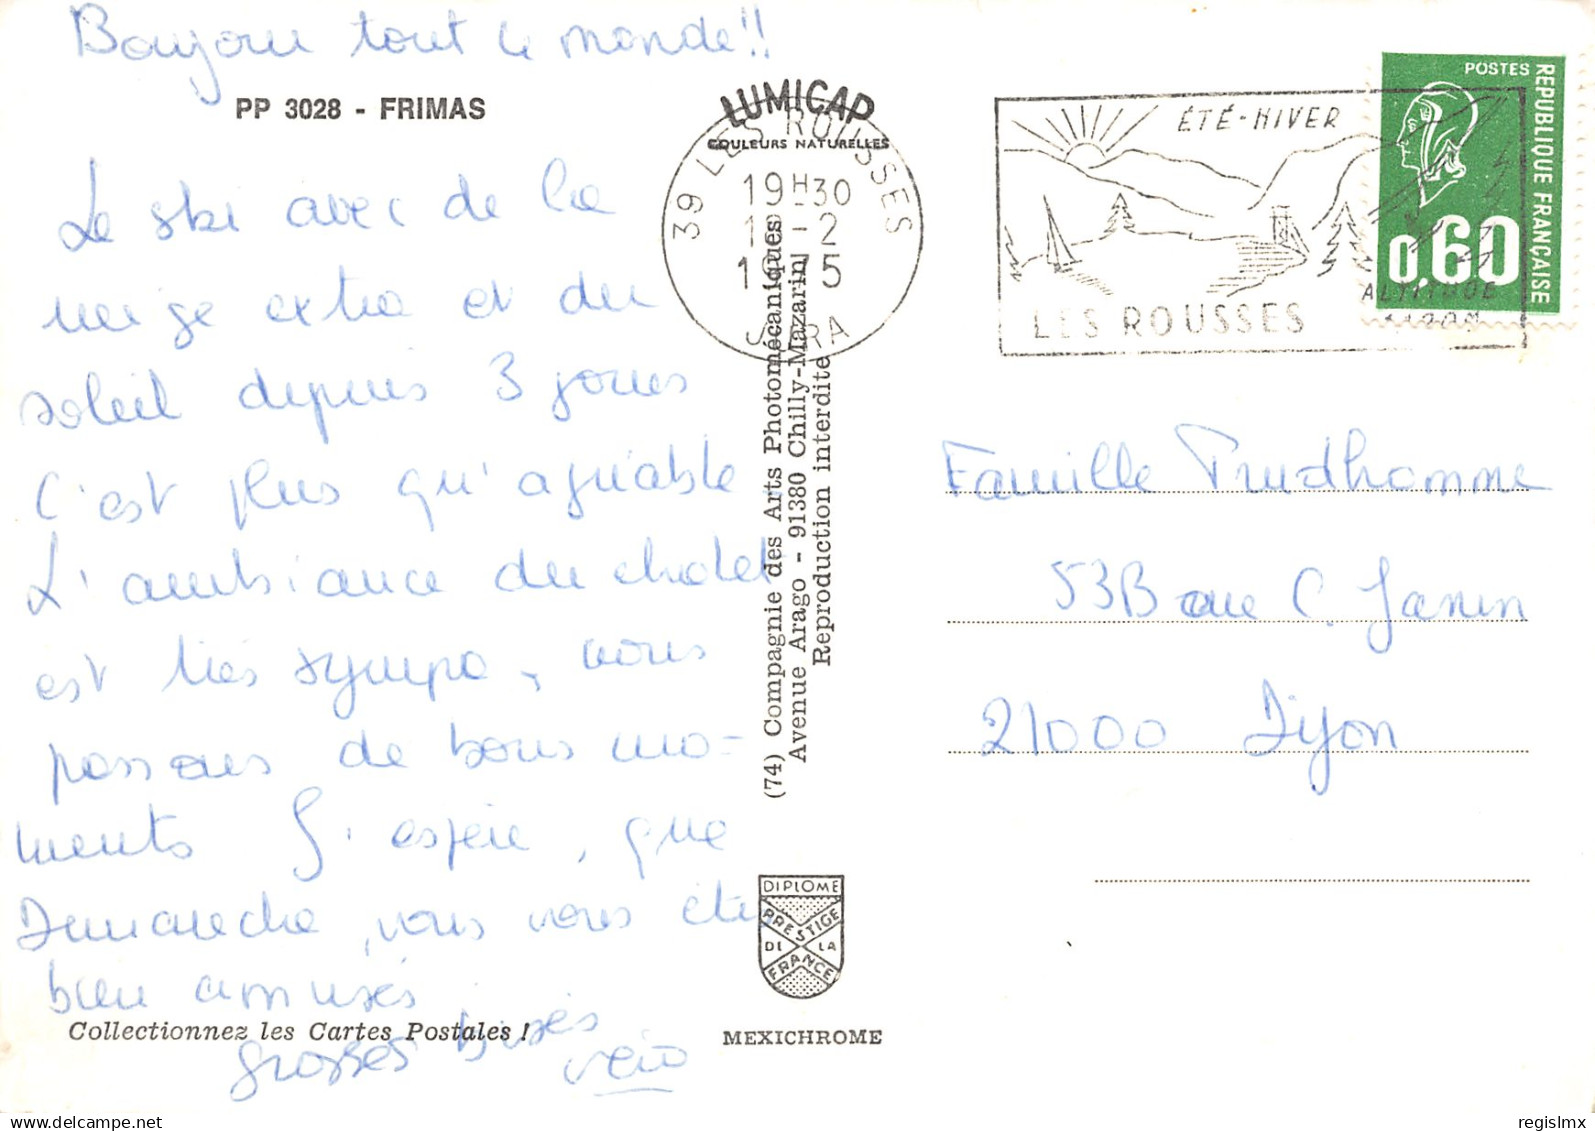 Bonjour tout le monde !!
PP 3028 - FRIMAS
Le ski avec de la
neige extra et du
soleil depuis 3 jours
C'est plus qu'agréable
L'ambiance du chalet
est très sympa, nous
passons de bons mo=
ments J'espère, que
Dimanche, vous vous êtes
bien amusés
grosses bises
Véro
Collectionnez les Cartes Postales !
LUMICAP
COULEURS NATURELLES
39 LES ROUSSES
19H30
-2
JURA
(74) Compagnie des Arts Photomécaniques
Avenue Arago - 91380 Chilly-Mazarin
Reproduction interdite
DIPLOME
PRESTIGE
DE LA
FRANCE
MEXICHROME
ÉTÉ-HIVER
LES ROUSSES
ALTITUDE
POSTES
REPUBLIQUE FRANÇAISE
0,60
Famille Prudhomme
53B rue C. Janin
21000 Dijon
regislmx